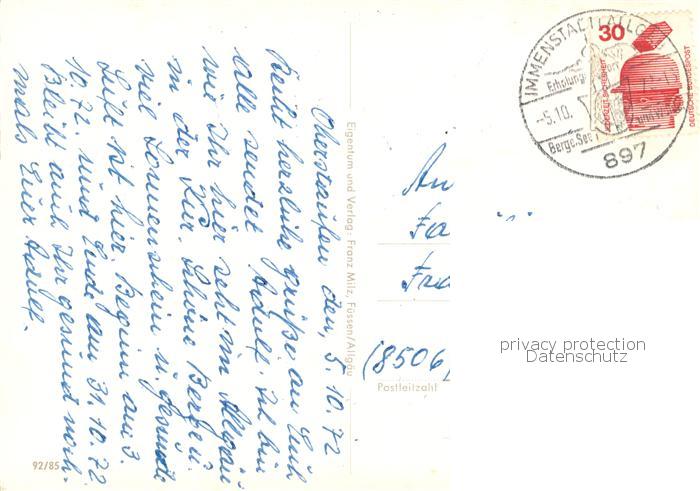 Oberstaufen den, 5. 10. 72
Recht herzliche Grüße an Euch
alle sendet Adolf. Ich bin
wie Ihr hier seht im Allgäu
in der Kur. Schöne Berge u.
viel Sonnenschein u. gesunde
Luft ist hier. Beginn am 3.
10. 72. und Ende am 31. 10. 72
Bleibt auch Ihr gesund noch-
mals Euer Adolf.
Eigentum und Verlag: Franz Milz, Füssen/Allgäu
92/85
IMMENSTADT ALLGÄU
Erholung
-5.10.
Berge.See
897
30
DEUTSCHE BUNDESPOST
An
Fa
(8506)
Postleitzahl
privacy protection
Datenschutz